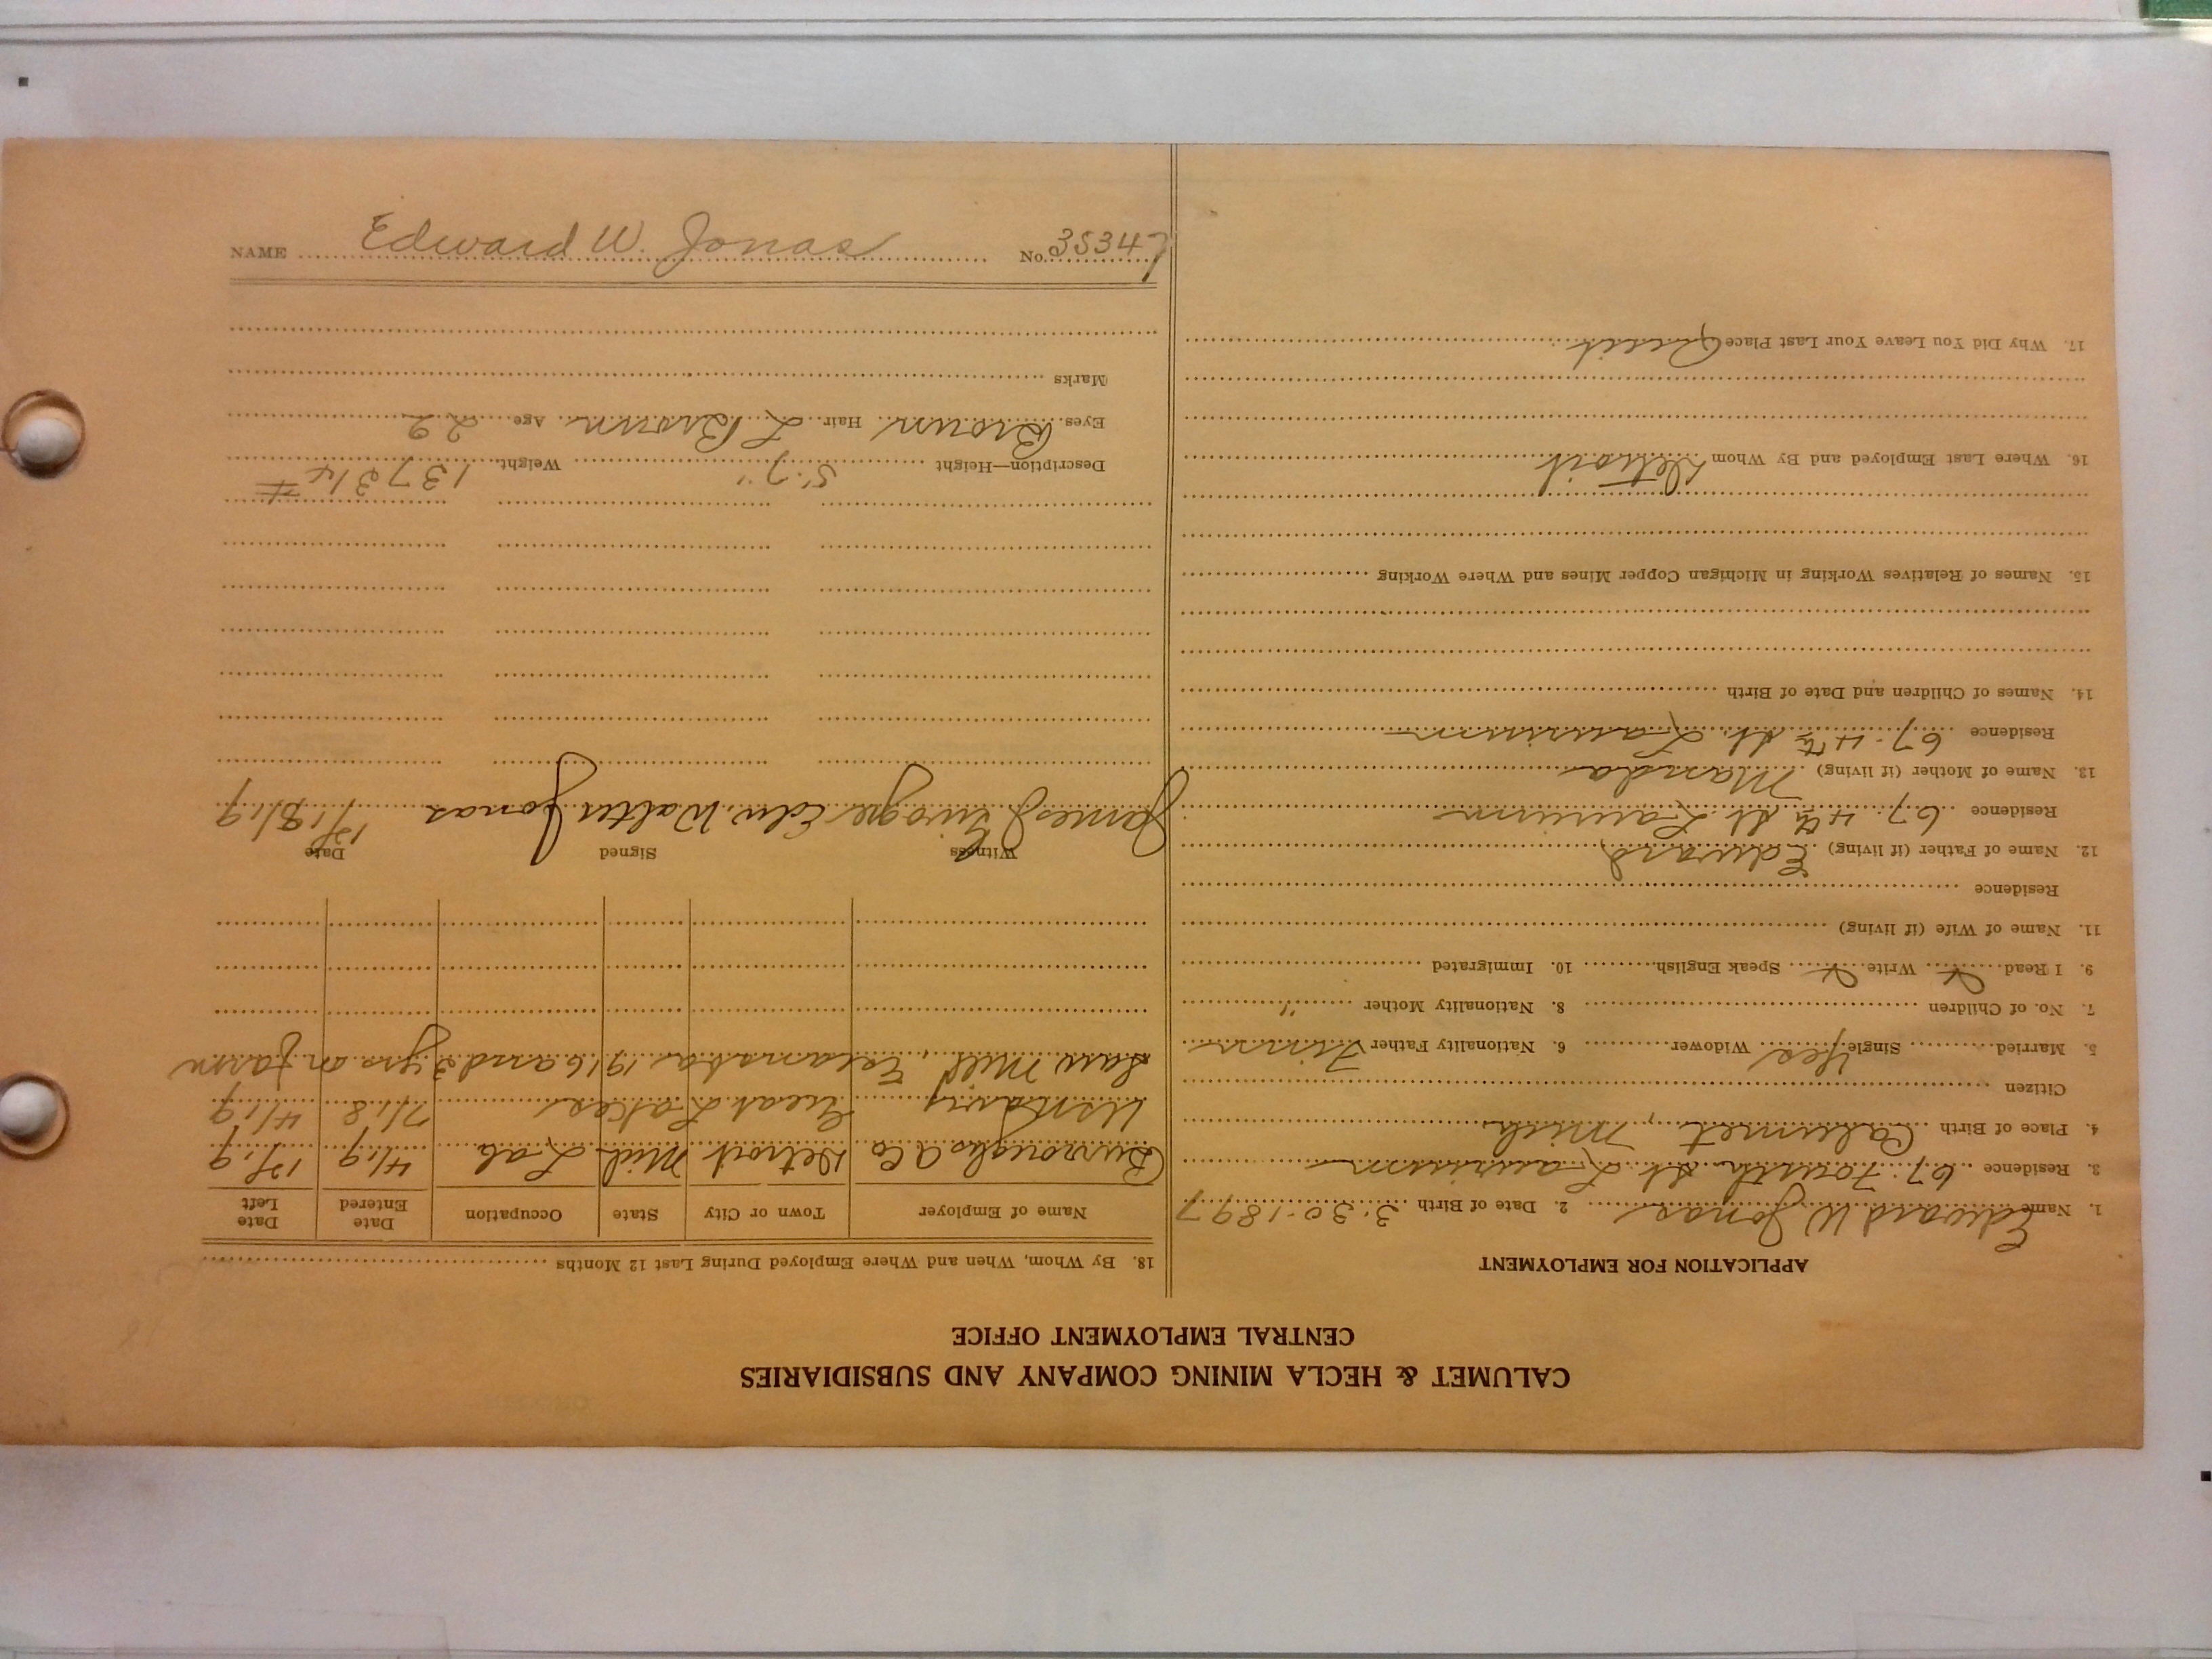 CALUMET & HECLA MINING COMPANY AND SUBSIDIARIES
CENTRAL EMPLOYMENT OFFICE
APPLICATION FOR EMPLOYMENT
1. Name Edward W Jonas 2. Date of Birth 3-30-1897
3. Residence 67 Fourth St Laurium
4. Place of Birth Calumet, Mich
Citizen
5. Married Single Yes Widower 6. Nationality Father Finn
7. No. of Children 8. Nationality Mother "
9. I Read Write Speak English 10. Immigrated
11. Name of Wife (if living)
Residence
12. Name of Father (if living) Edward
Residence 67-4th St Laurium
13. Name of Mother (if living) Manda
Residence 67-4th St. Laurium
14. Names of Children and Date of Birth
15. Names of Relatives Working in Michigan Copper Mines and Where Working
16. Where Last Employed and By Whom Detroit
17. Why Did You Leave Your Last Place Quit
18. By Whom, When and Where Employed During Last 12 Months
Name of Employer Town or City State Occupation Date Entered Date Left
Burroughs A Co Detroit Mich Lab 4/19 12/19
US Navy Great Lakes 7/18 4/19
Saw Mill, Escanaba 1916 and 3 yrs on farm
Witness Signed Date
James J Edw. Walter Jonas 12/18/19
Description—Height 5'.7" Weight 137 3/4 #
Eyes Brown Hair L Brown Age 22
Marks
NAME Edward W. Jonas No. 35347